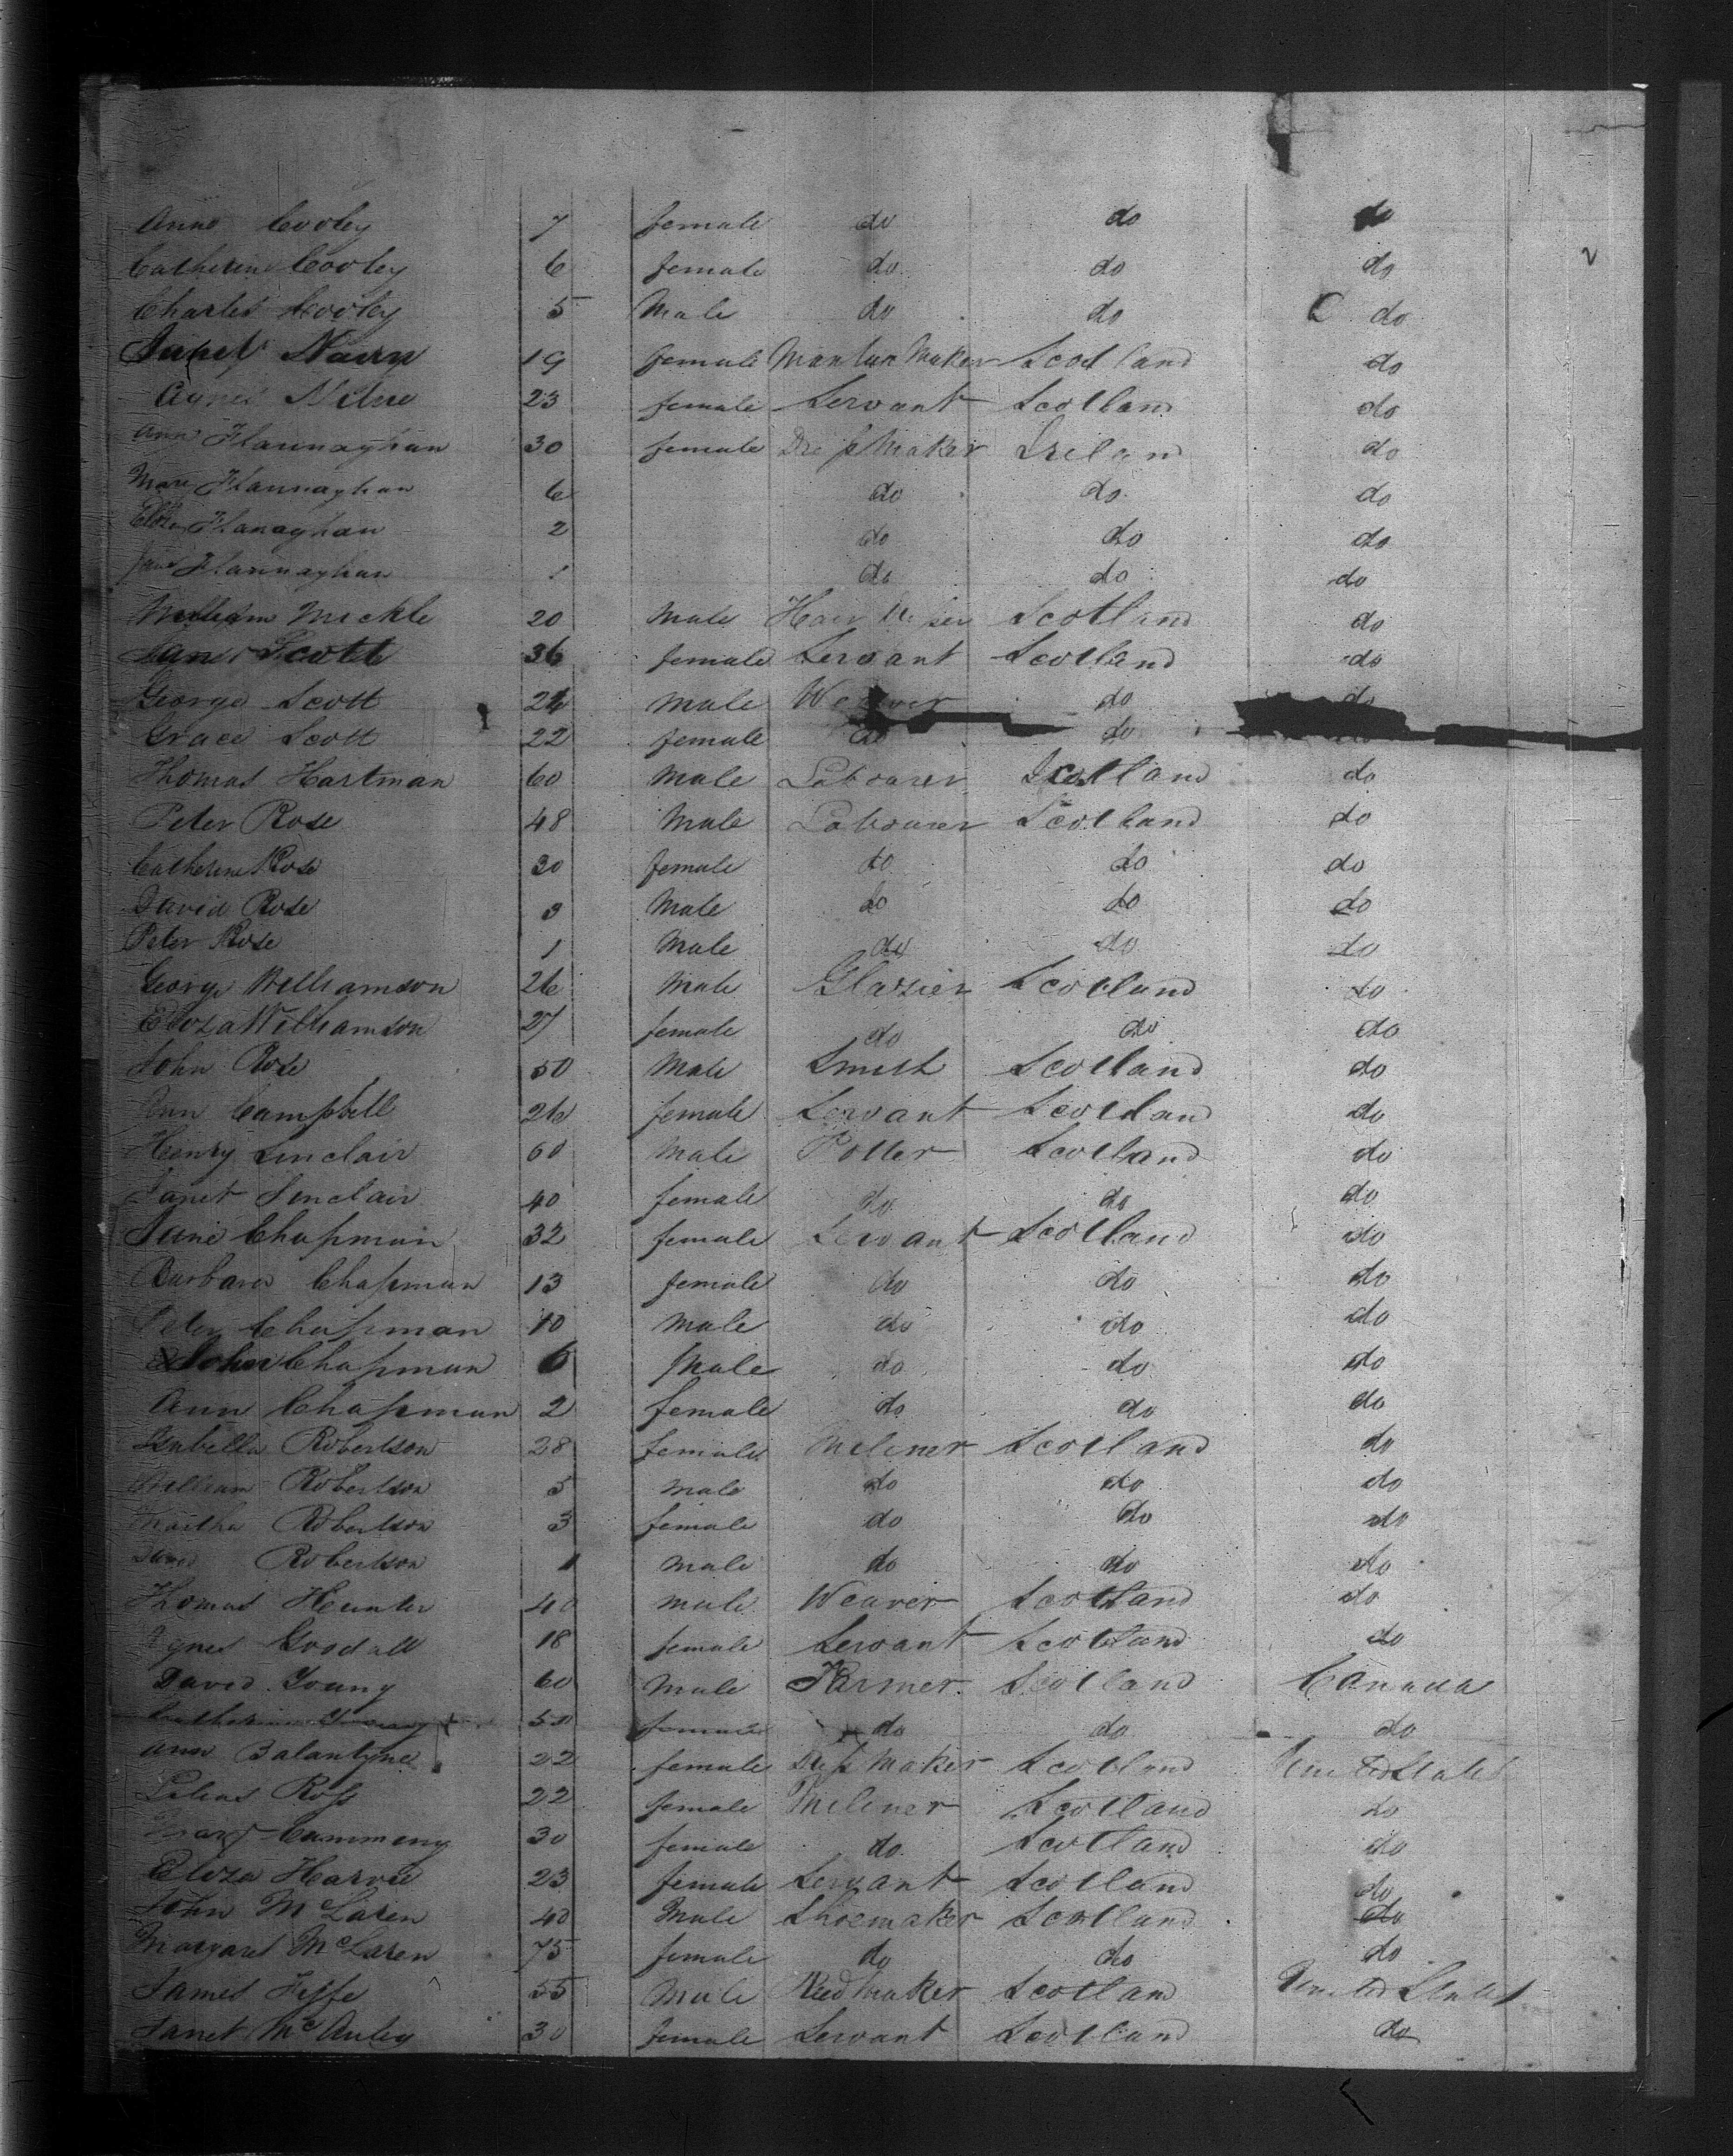 Anne Cooley 7 female do do do
Catherine Cooley 6 female do do do 2
Charles Cooley 5 Male do do C do
Janet Nairn 19 female Mantua Maker Scotland do
Agnes Milne 23 female Servant Scotland do
Ann Flannaghan 30 female Dress Maker Ireland do
Mary Flannaghan 6 do do do
Eliza Flanaghan 2 do do do
Jane Flannaghan 1 do do do
William Mickle 20 Male Scotland do
Janet Scott 36 female Servant Scotland do
George Scott 24 male Weaver do do
Grace Scott 22 female do do do
Thomas Hartman 60 Male Labourer Scotland do
Peter Rose 48 Male Labourer Scotland do
Catherine Rose 30 female do do do
David Rose 3 Male do do do
Peter Rose 1 Male do do do
George Williamson 26 Male Glasier Scotland do
Eliza Williamson 27 female do do do
John Rose 50 Male Smith Scotland do
Ann Campbell 26 female Servant Scotland do
Henry Sinclair 60 Male Potter Scotland do
Janet Sinclair 40 female do do do
Jane Chapman 32 female Servant Scotland do
Barbara Chapman 13 female do do do
Peter Chapman 10 Male do do do
John Chapman 6 Male do do do
Ann Chapman 2 female do do do
Isabella Robertson 28 female Miliner Scotland do
William Robertson 5 male do do do
Martha Robertson 3 female do do do
Robertson 1 male do do do
Thomas Hunter 40 male Weaver Scotland do
Agnes Goodall 18 female Servant Scotland do
David Young 60 Male Farmer Scotland Canada
Catherine Young 50 female do do do
Ann Balantyne 22 female Dress Maker Scotland United States
Lilias Ross 22 female Miliner Scotland do
Mary Cumming 30 female do Scotland do
Eliza Harvie 23 female Servant Scotland do
John McLaren 40 Male Shoemaker Scotland do
Margaret McLaren 75 female do do do
James Fyffe 55 Male Reed Maker Scotland United States
Janet McAuley 30 female Servant Scotland do